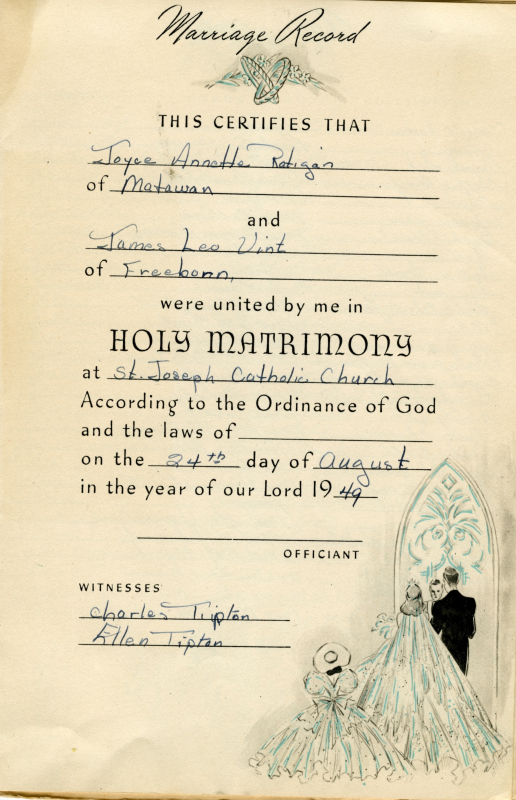 Marriage Record
THIS CERTIFIES THAT
Joyce Annette Ratigan
of Matawan
and
James Leo Vint
of Freeborn,
were united by me in
HOLY MATRIMONY
at St. Joseph Catholic Church
According to the Ordinance of God
and the laws of
on the 24th day of August
in the year of our Lord 1949
OFFICIANT
WITNESSES
Charles Tipton
Ellen Tipton